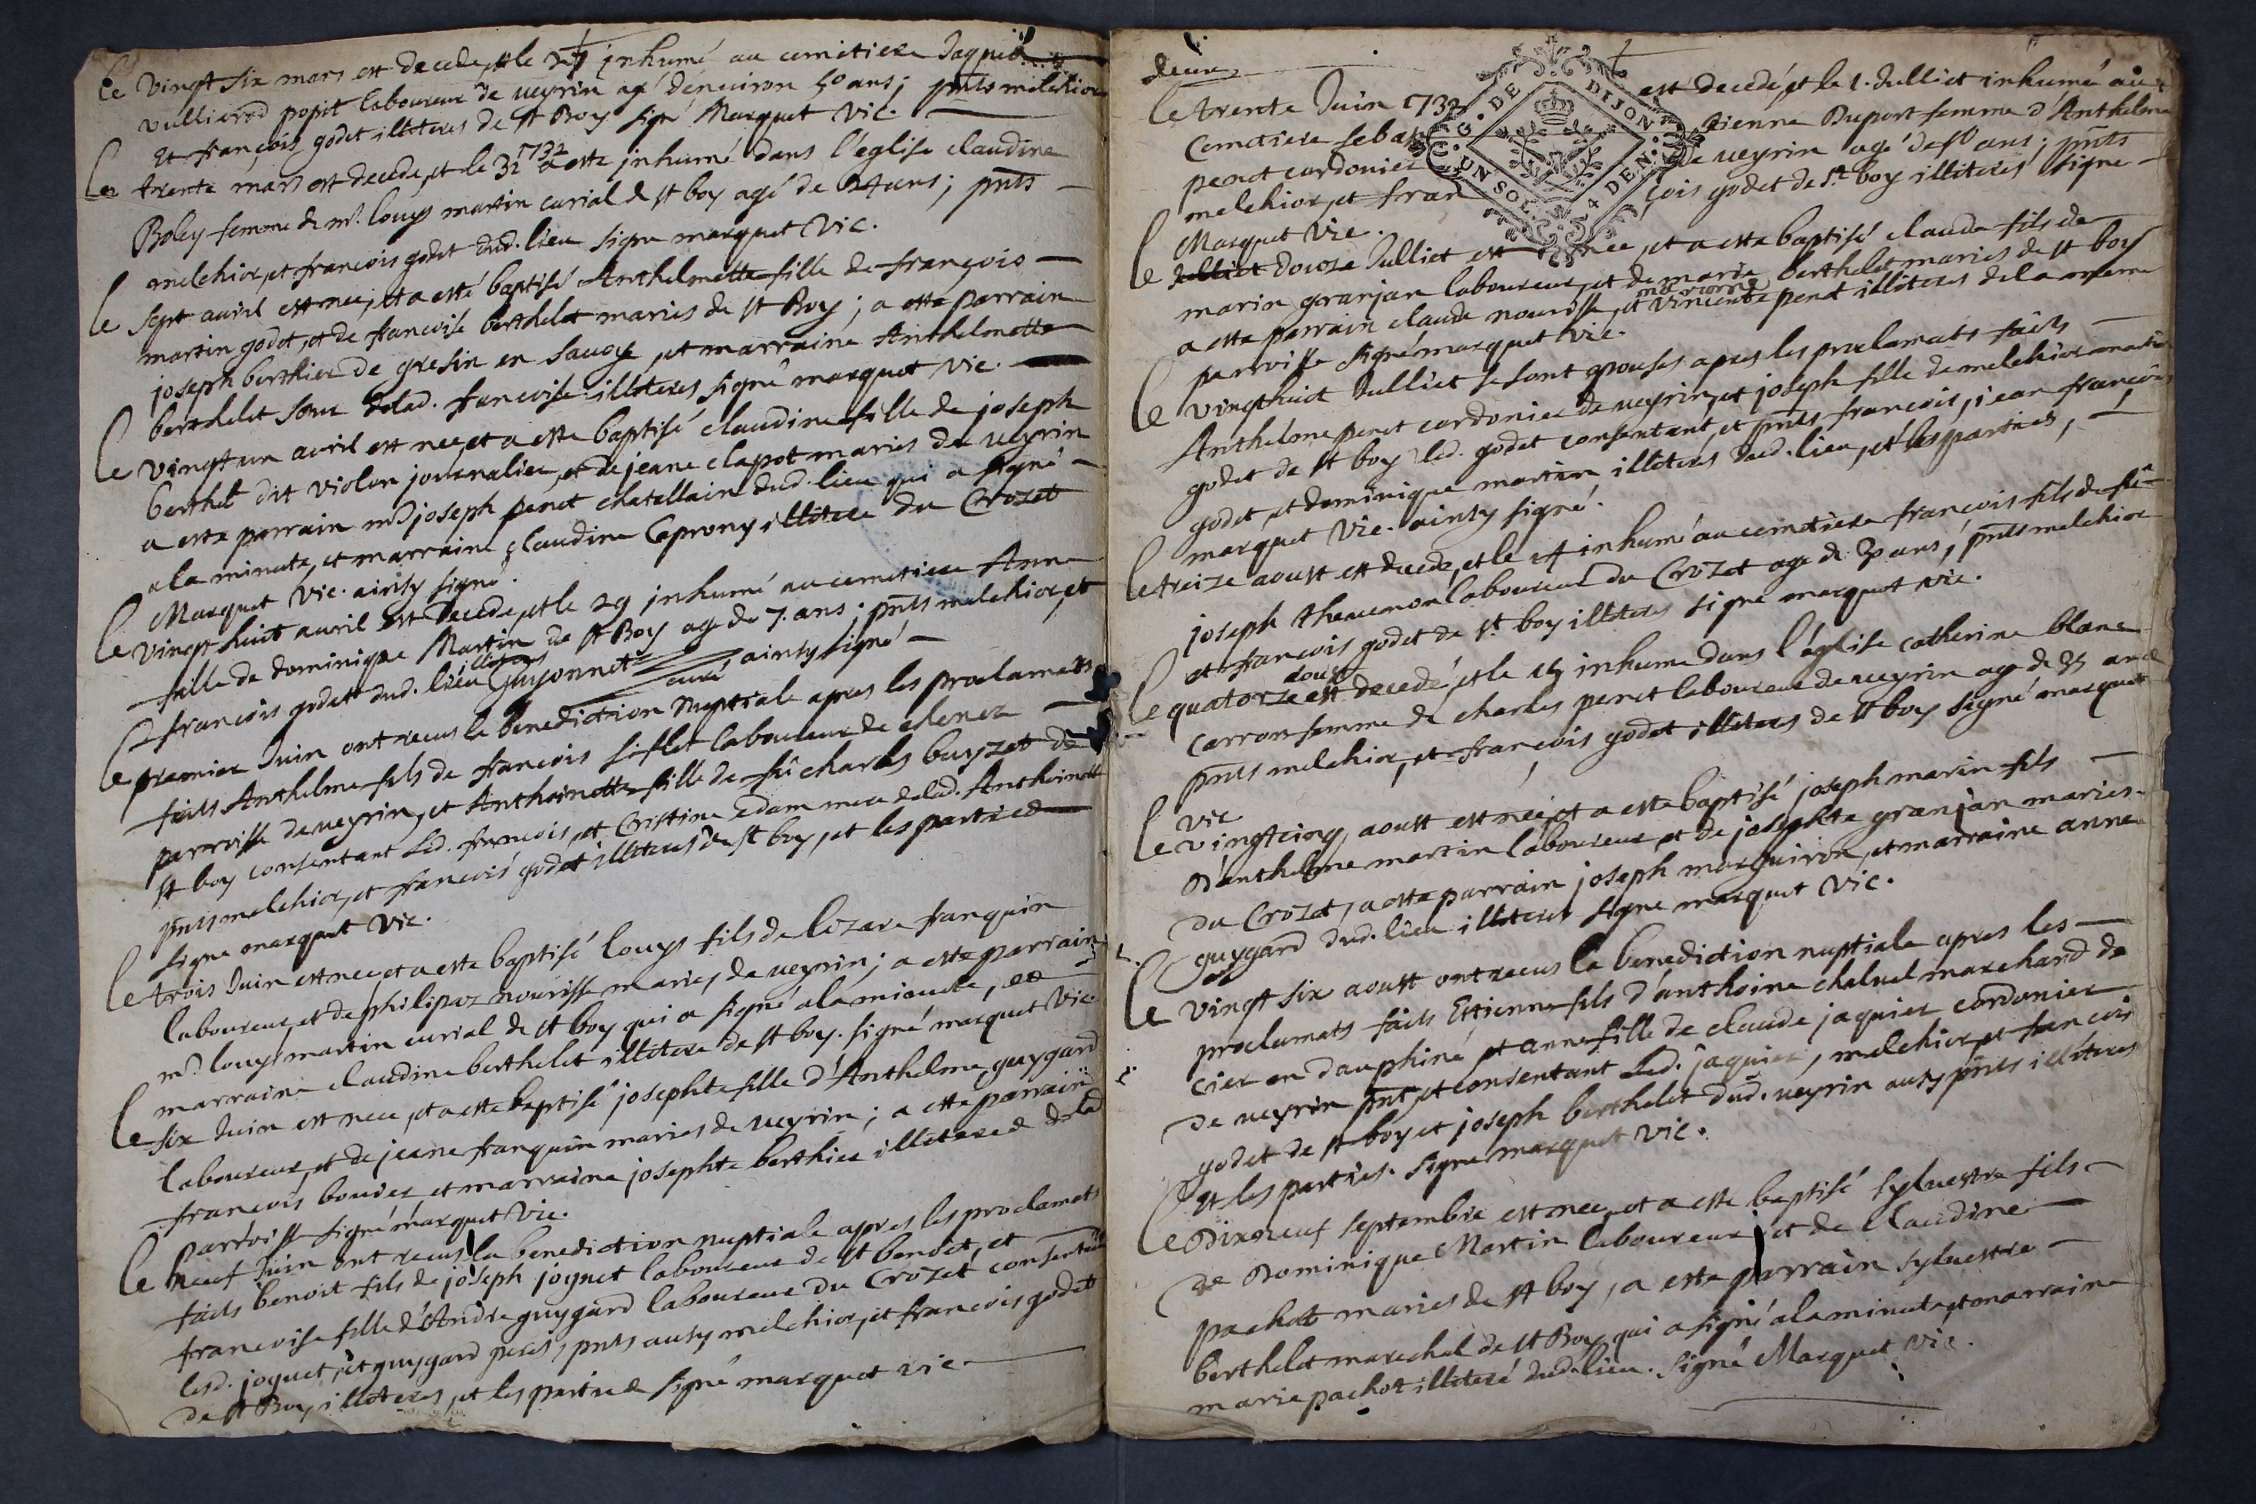 Le vingt six mars est decede, et le 27 inhumé au cimetiere Jaques
vulliarod popit laboureur de veyrin agé denuiron 50 ans; pnts melchior
et françois godet illiteres de St Boy signé Marquet Vic.
Le trente mars est decede, et le 31 1732 a este inhumé dans l'eglise claudine
Boley femme de mr. louys martin curial de st boy agé de 24 ans; pnts
melchior, et francois godet dud. lieu signe marquet Vic.
le sept auril est nee, et a esté baptisé Anthelmette fille de françois
martin godet, et de francoise berthelet mariés de st Boy; a este parrain
joseph berthier de gresin en sauoye, et marraine Anthelmette
berthelet sœur delad. francoise illiteres signé marquet vic.
le vingt un auril est nee, et a este baptisé claudine fille de joseph
berthet dit violon journalier, et de jeane clapot mariés de veyrin
a este parrain mr joseph penet chatellain dud. lieu qui a signé
a la minute, et marraine claudine Caprony illitere du Crozet
Marquet Vic. ainsy signé.
le vingt huit auril est decede, et le 29 inhumé au cemetiere Anne
fille de dominique Martin de st Boy age de 7 ans; pnts melchior, et
francois godet dud. lieu illiteres Guyonnet curé ainsy signé
le premier Juin ont receus la benediction nuptiale apres les proclamats
faits Anthelme fils de francois siflet laboureur de chenez
parroisse de veyrin, et Anthoinette fille de fû charles buyzet de
st boy consentant Led. francois, et Cristine edam mere delad. Anthoinette
pnts melchior, et francois godet illiteres de st boy, et les parties
signe marquet Vic.
le trois Juin est nee, et a este baptisé louys fils de lazare franquin
laboureur, et de philipaz nourisse mariés de veyrin; a este parrain
mr. louys martin curial de st boy qui a signé a la minute, et
marraine claudine berthelet illitere de st boy. signé marquet Vic
le six Juin est nee, et a este baptisé josephte fille d'Anthelme guygard
laboureur, et de jeane franquin mariés de veyrin; a esté parrain
francois boudez, et marraine josephte berthier illiteres de lad
parroisse signé marquet Vic.
le neuf Juin ont receus la benediction nuptiale apres les proclamats
faits benoit fils de joseph joguet laboureur de st benoit, et
francoise fille d'Andre guygard laboureur du Crozet consentans
lesd. joguet, et guygard peres, pnts ausy melchior, et francois godet
de st Boy illiteres, et les parties signé marquet vic
deux
le trente Juin 1732 est decedé, et le 1. Julliet inhumé au
Cemetiere tienne Duport femme d'Anthelme
penet cordonier de veyrin agé de 50 ans; pnts
melchior, et fran çois godet de st. boy illiteres signe
Marquet Vic.
G. DE DIJON
UN SOL. 4 DEN.
le Julliet douze Julliet est nee, et a este baptisé claude fils de
marin granjan laboureur, et de marie berthelet mariés de st boy
a este parrain claude nourisse, et marraine vincente penet illiteres de la mame
parroisse signé marquet Vic.
le vingthuit Julliet se sont epousés apres les proclamats faits
Anthelme penet cordonier de veyrin, et joseph fille de melchior martin
godet de st boy led. godet consentant, et pnts francois, jean francois
godet, et dominique martin illiteres dud. lieu, et les parties,
marquet Vic. ainsy signé.
le treize aoust est decede, et le 14 inhumé au cemetiere francois fils de fû
joseph theuenon laboureur du Crozet age de 30 ans; pnts melchior
et francois godet de st boy illiteres signe marquet vic.
Le quatorze aoust est decedé, et le 15 inhume dans l'église catherine blanc
carron femme de charles penet laboureur de veyrin age de 35 ans
pnts melchior, et françois godet illiteres de st boy signé marquet
vic
le vingtcinq, aoust est né, et a este baptisé joseph marin fils
D'anthelme martin laboureur, et de josephte granjan mariés
du Crozet, a este parrain joseph marguiron, et marraine anne
guygard dud. lieu illiteres signe marquet Vic.
le vingt six aoust ont receus la benediction nuptiale apres les
proclamats faits Ettienne fils d'anthoine chaluel marchand de
cier en dauphiné, et anne fille de claude jaquier cordonier
de veyrin pnt, et consentant Led. jaquier, melchior, et francois
godet de st boy et joseph berthelet dud. veyrin ausy pnts illiteres
et les parties. signe marquet Vic.
Le Dixneuf septembre est nee, et a este baptisé syluestre fils
de Dominique Martin laboureur, et de Claudine
pachot mariés de st boy, a este parrain syluestre
berthelet marechal de st Boy qui a signé a la minute, et marraine
marie pachot illiteré dud. lieu. signé Marquet Vic.